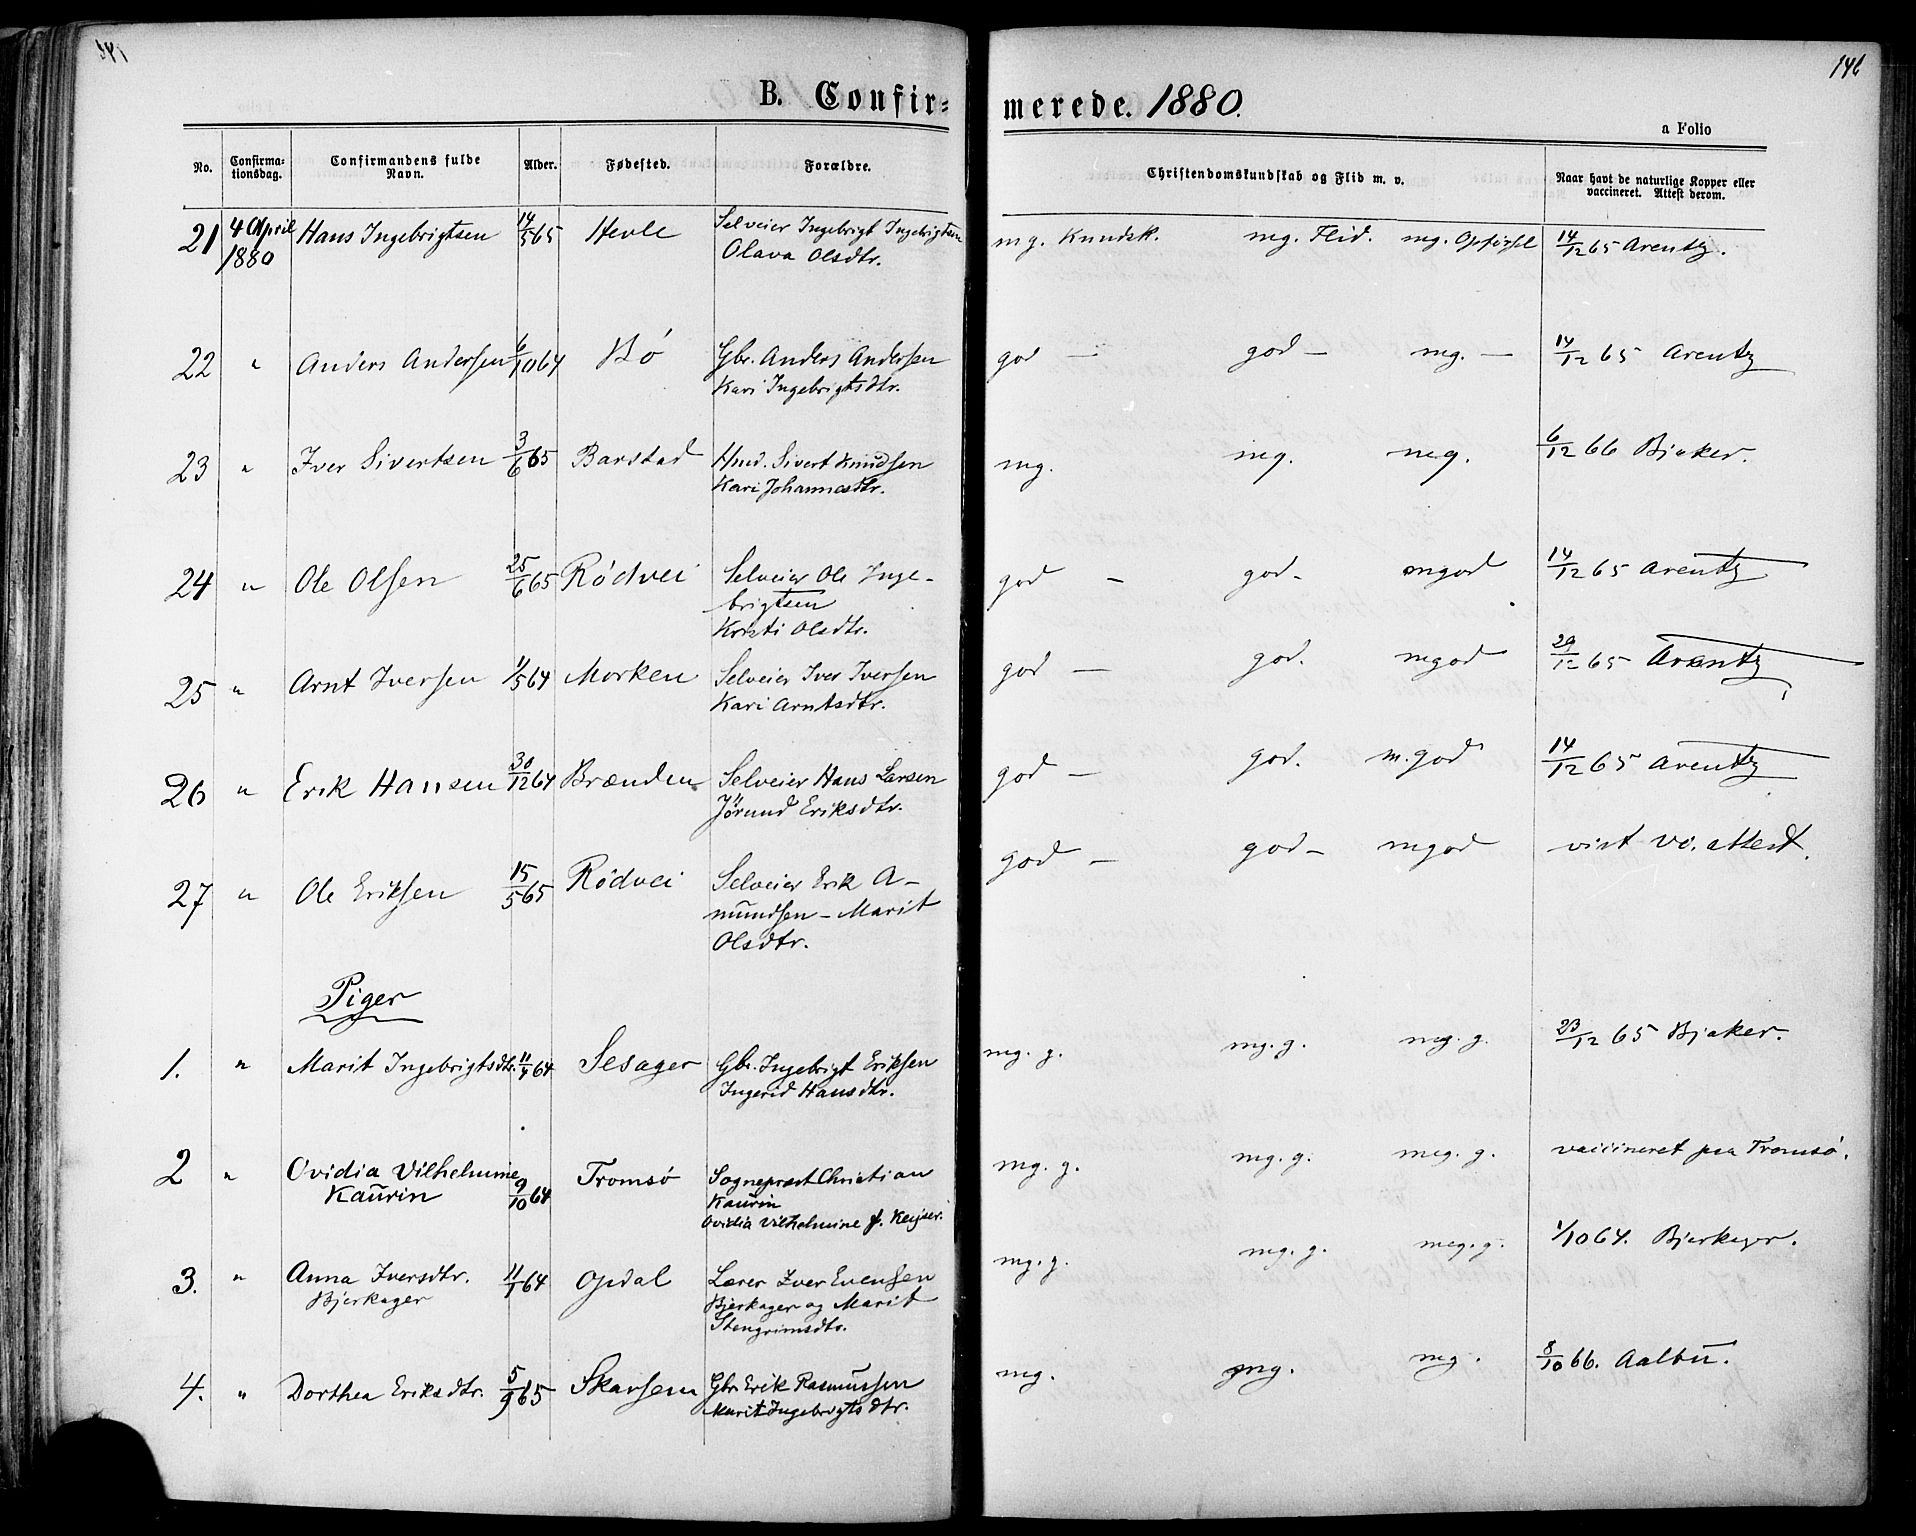 146
B. Confir=
merede. 1880.
a Folio
No.
Confirma-
tionsdag.
Confirmandens fulde
Navn.
Alder.
Fødested.
Forældre.
Christendomskundskab og Flid m. v.
Naar havt de naturlige Kopper eller
vaccineret. Attest derom.
21 4 April 1880 Hans Ingebrigtsen 14/5 65 Hevle Selveier Ingebrigt Ingebrigtsen mg. Kundsk. mg. Flid. mg. Opførsel 14/12 65 Arentz.
Olava Olsdtr.
22 " Anders Andersen 6/10 64 Bø Gbr. Anders Andersen god — god — mg. — 14/12 65 Arentz
Kari Ingebrigtsdtr.
23 " Iver Sivertsen 3/6 65 Barstad Hmd. Sivert Knudsen mg. mg. meg. 6/12 66 Bjøker.
Kari Johannesdtr.
24 " Ole Olsen 25/6 65 Rödvei Selveier Ole Inge- god — god - mgod 14/12 65 Arentz
brigtsen
Kristi Olsdtr.
25 " Arnt Iversen 11/5 64 Morken Selveier Iver Iversen god — god. mgod 29/12 65 Arentz
Kari Arntsdtr.
26 " Erik Hansen 30/12 64 Brænden Selveier Hans Larsen god — god. m.god 14/12 65 Arentz
Jörund Eriksdtr.
27 " Ole Eriksen 15/5 65 Rödvei Selveier Erik A- god — god — mgod vist va. attest.
mundsen - Marit
Olsdtr.
Piger
1. " Marit Ingebrigtsdtr. 11/4 64 Sesager Gbr. Ingebrigt Eriksen mg. g. mg. g. meg. g. 23/12 65 Bjøker.
Ingerid Hansdtr.
2 " Ovidia Vilhelmine 9/10 64 Tromsø Sognepræst Christian mg. g. mg. g. meg. g. vaccineret paa Tromsø.
Kaurin Kaurin
Ovidia Vilhelmine f. Keyser.
3. " Anna Iversdtr. 11/1 64 Opdal Lærer Iver Evensen mg. g. mg. g. meg. g. 1/10 64. Bjerkager.
Bjerkager Bjerkager og Marit
Stengrimsdtr.
4. " Dorthea Eriksdtr. 5/9 65 Skarsem Gbr. Erik Rasmussen mg. mg. mg. 8/10 66. Aalbu.
Marit Ingebrigtsdtr.